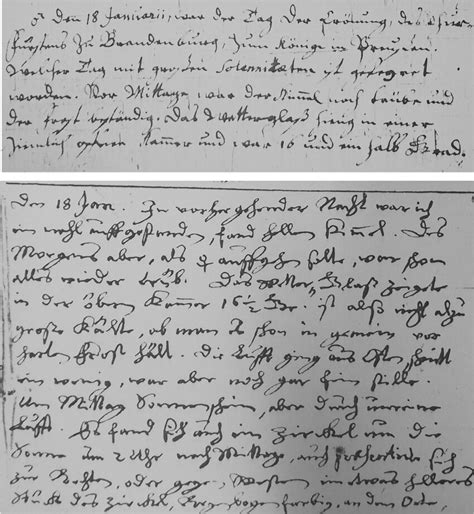 ♂ den 18 Januarii, war der Tag der Crönung, des Chur-
fürstens zu Brandenburg, zum Könige in Preußen.
welcher Tag mit großen Solenniteten ist gefeyret
worden. Vor Mittage war der Himmel noch trübe und
der frost beständig. Das Wetterglaß hieng in einer
zimlich offenen Kammer und war 16 und ein halb Grad.
Den 18 Jan. In vorhergehender Nacht war ich
ein mahl auffgestanden, fand hellen Himmel. Des
Morgens aber, als ☿ auffgehen solte, war schon
alles wieder trüb. Das Wetter-Glaß zeigete
in der obern Kammer 16 ½ Gr. ist also nicht allzu
große Kälte, ob man es schon in gemein vor
harten frost hält. die Lufft ging aus Osten,
ein wenig, war aber noch gar fein stille.
Um Mittag Sonnenschein, aber durch unreine
Lufft. Es fand sich auch ein Zirckel um die
Sonne um 2 Uhr nach Mittage, auch sich
zur Rechten, oder gegen Westen ein etwas helleres
Stück des Zirckel, Regenbogen-farbig, an dem Orte,